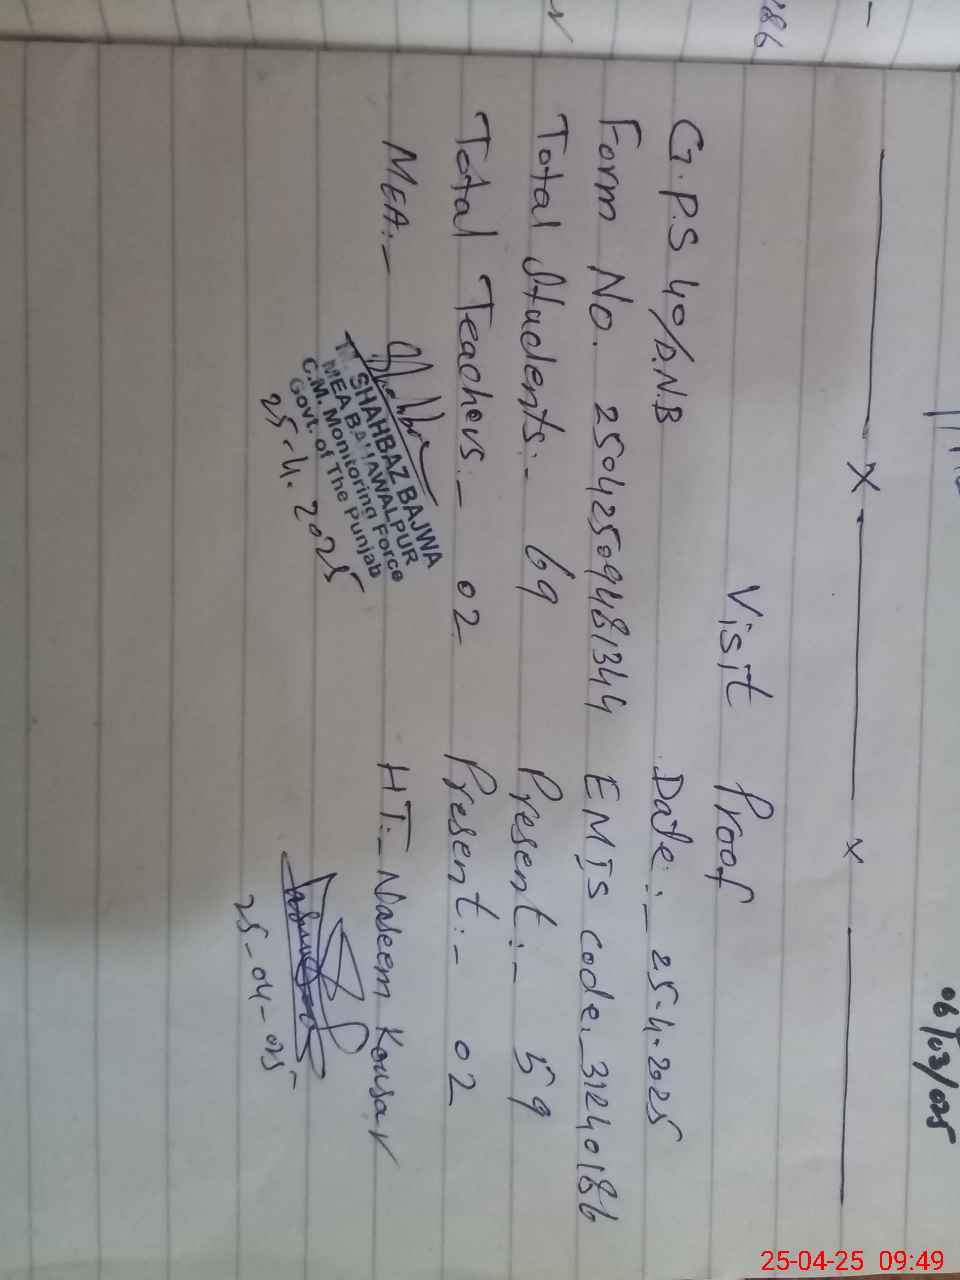 186
06/03/025
Visit Proof
G.P.S 40/D.N.B Date:- 25-4-2025
Form No. 25042509481344 EMIS code. 31240186
Total Students:- 69 Present:- 59
Total Teachers:- 02 Present:- 02
MEA:- HT:- Naseem Kousar
SHAHBAZ BAJWA
MEA BAHAWALPUR
C.M. Monitoring Force
Govt. of The Punjab
25-4-2025
25-04-025
25-04-25 09:49